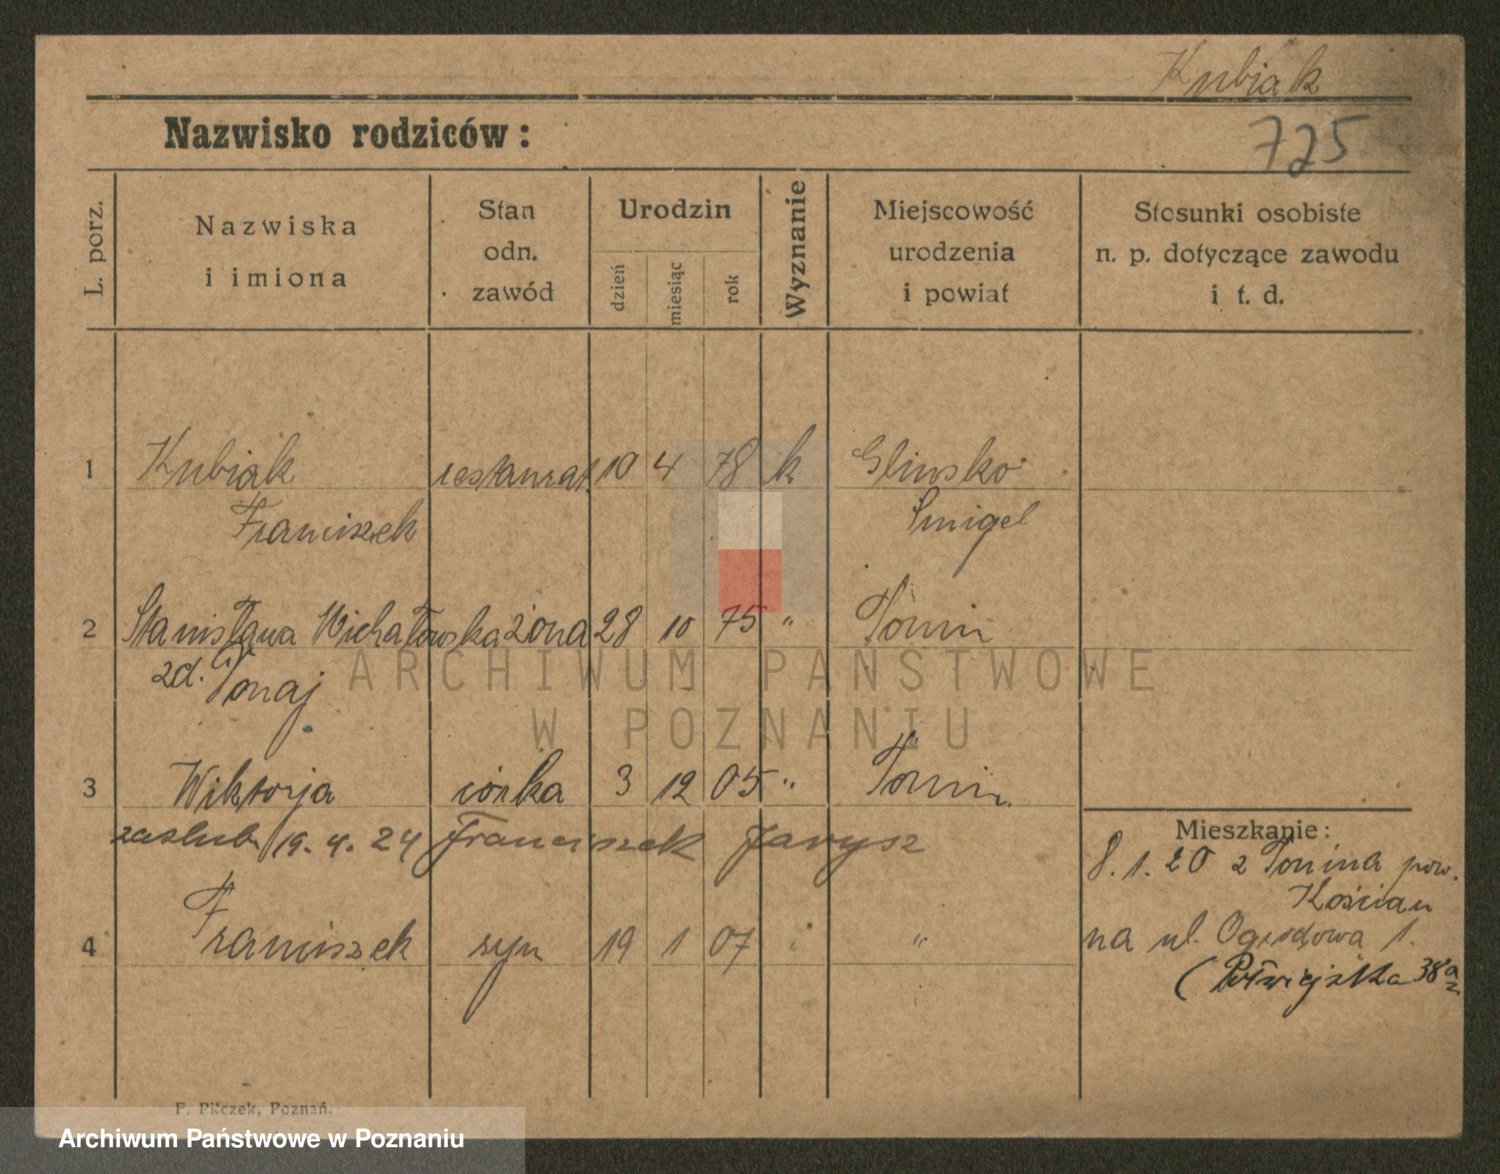 Kubiak
725
Nazwisko rodziców:
L. porz.
Nazwiska i imiona
Stan odn. zawód
Urodzin
dzień
miesiąc
rok
Wyznanie
Miejscowość urodzenia i powiat
Stosunki osobiste n. p. dotyczące zawodu i t. d.
1 Kubiak restaurat. 10 4 78 k Glinsko
Franciszek Smigel
2 Stanisława Michałowska żona 28 10 75 " Tonin
zd. Tonaj
3 Wiktorja córka 3 12 05 " Tonin
zaślub. 19. 4. 24 Franciszek Jarysz
4 Franciszek syn 19 1 07 " "
Mieszkanie:
8. 1. 20 z Tonina pow.
Kościan
na ul. Ogrodowa 1.
(Półwiejska 38a
F. Pilczek, Poznań.
ARCHIWUM PAŃSTWOWE
W POZNANIU
Archiwum Państwowe w Poznaniu